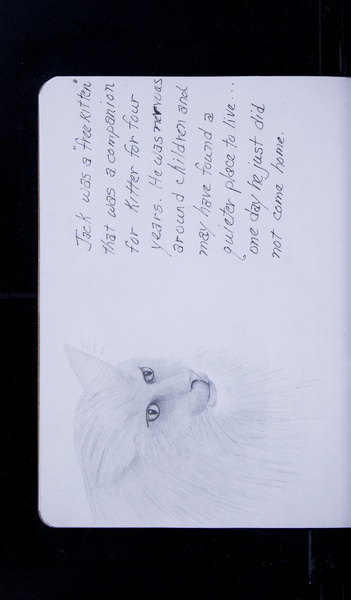 Jack was a "free kitten"
that was a companion
for Kitter for four
years. He was nervous
around children and
may have found a
quieter place to live...
one day he just did
not come home.